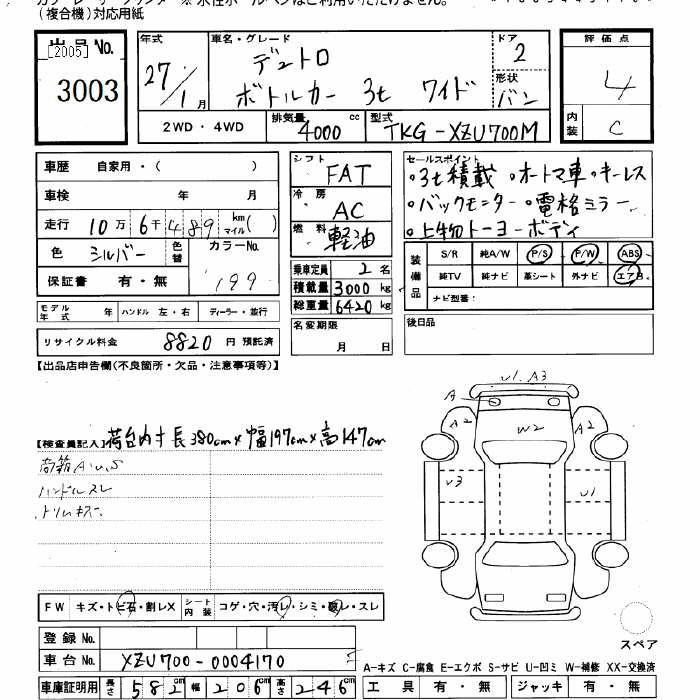 (複合機)対応用紙
出品No.
[2005]
3003
年式
27/1月
車名・グレード
デュトロ
ボトルカー 3t ワイド
ドア
2
形状
バン
評価点
4
内装
C
2WD・4WD
排気量 4000 cc
型式 TKG-XZU700M
車歴 自家用・( )
車検 年 月
走行 10万6千489 km マイル( )
色 シルバー 色替 カラーNo. 199
保証書 有・無
シフト FAT
冷房 AC
燃料 軽油
乗車定員 2名
積載量 3000kg
総重量 6420kg
セールスポイント
・3t積載 ・オートマ車・キーレス
・バックモニター・電格ミラー
・上物トーヨーボディ
装備品
S/R 純A/W P/S P/W ABS
純TV 純ナビ 革シート 外ナビ エアB
ナビ型番:
モデル年式 年 ハンドル 左・右 ディーラー・並行
名変期限
月 日
後日品
リサイクル料金 8820 円 預託済
【出品店申告欄(不良箇所・欠品・注意事項等)】
【検査員記入】 荷台内寸 長380cm×幅197cm×高147cm
荷箱A.U.S
ハンドルスレ
トリムキズ
U1.A3
A
A2
W2
A2
U3
U1
FW キズ・トビ石・割レX シート内装 コゲ・穴・汚レ・シミ・破レ・スレ
スペア
登録No.
車台No. XZU700-0004170
A-キズ C-腐食 E-エクボ S-サビ U-凹ミ W-補修 XX-交換済
車庫証明用 長さ 582cm 幅 206cm 高さ 246cm
工具 有・無 ジャッキ 有・無